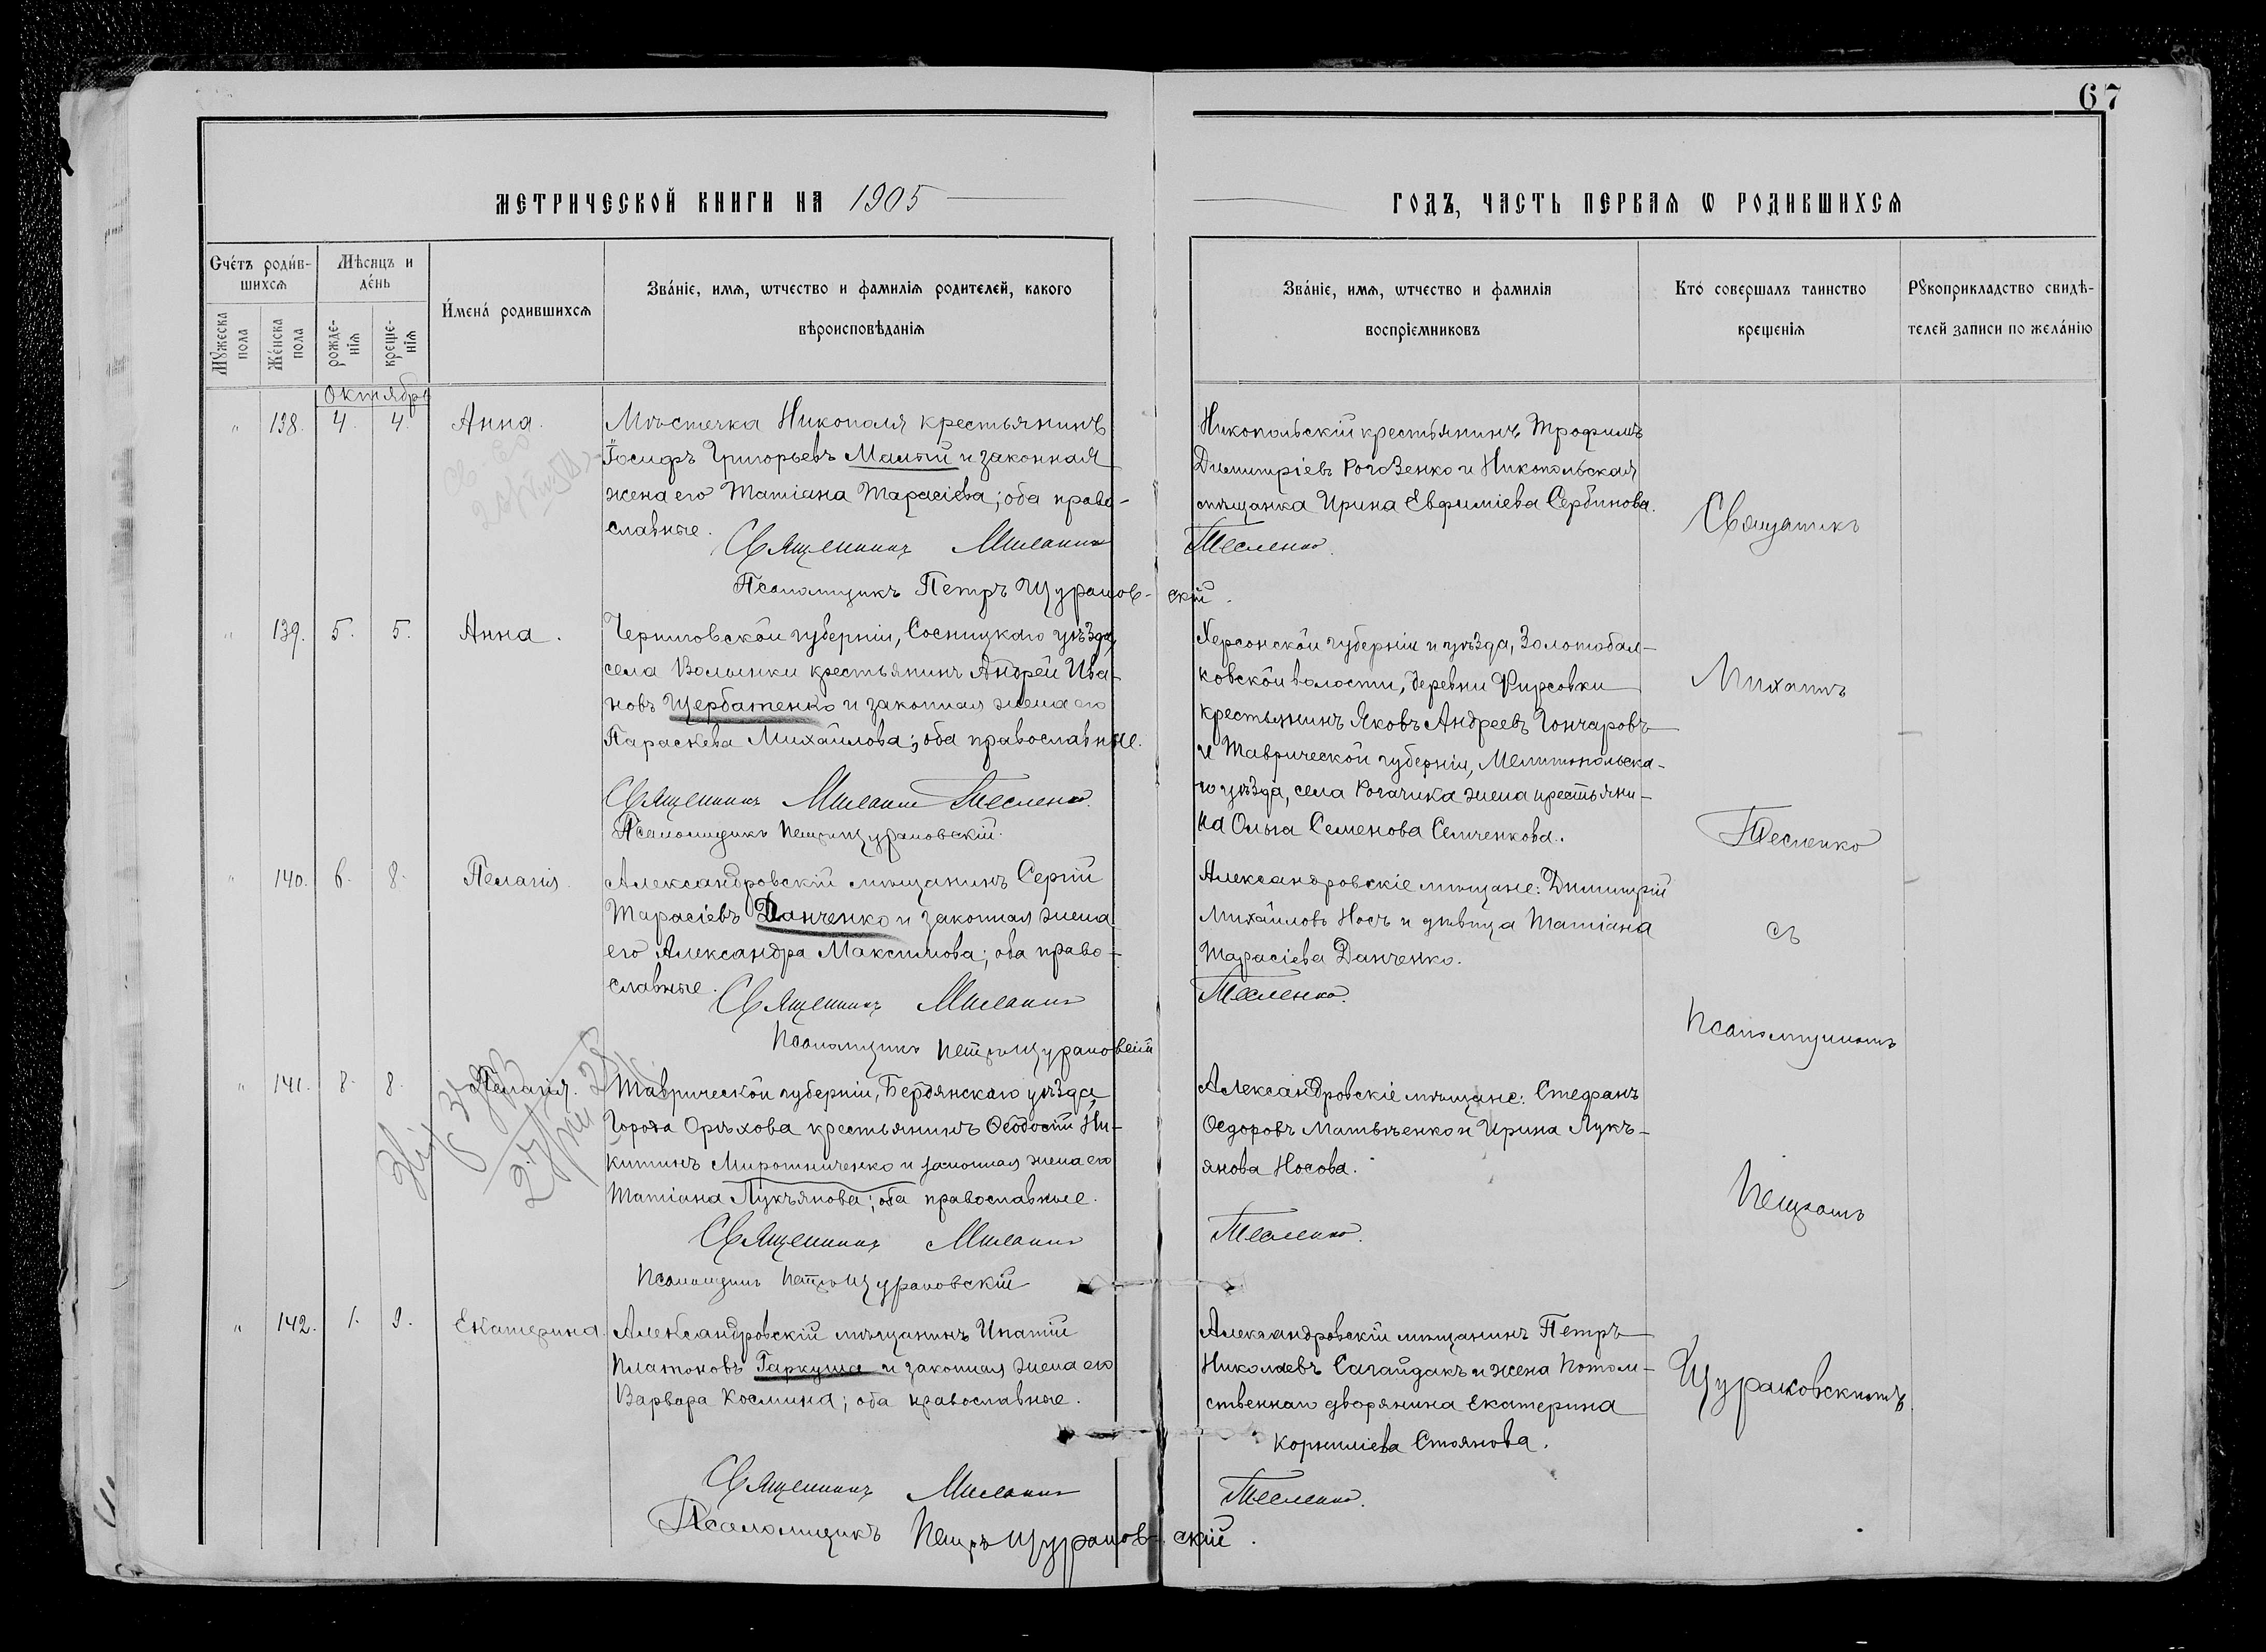 67
МЕТРИЧЕСКОЙ КНИГИ НА 1905
ГОДЪ, ЧАСТЬ ПЕРВАЯ Ѡ РОДИВШИХСЯ
Счétъ роди́вшихсѧ
Мꙋжеска пола
Же́нска пола
Мѣсяцъ и де́нь
рожденїя
крещенїя
И́мена́ родившихсѧ
Зва́нїе, имѧ, ѡтчество и фамилїѧ родителей, какого
вѣроисповѣданїѧ
Зва́нїе, имѧ, ѡтчество и фамилїѧ
воспрїемниковъ
Кто́ совершалъ таинство
крещенїѧ
Рꙋкоприкладство свидѣ-
телей записи по жела́нїю
Октябрь
" 138. 4. 4. Анна.
Мѣстечка Никополя крестьянинъ
Іосифъ Григорьевъ Малый и законная
жена его Татіана Тарасіева; оба право-
славные.
Священникъ Михаилъ Тесленко.
Псаломщикъ Петръ Щураковскій.
Никопольскій крестьянинъ Трофимъ
Димитріевъ Рогозенко и Никопольская
мѣщанка Ирина Евфиміева Сербинова.
" 139. 5. 5. Анна.
Черниговской губерніи, Сосницкаго уѣзда,
села Волынки крестьянинъ Андрей Ива-
новъ Щербатенко и законная жена его
Параскева Михайлова; оба православные.
Священникъ Михаилъ Тесленко.
Псаломщикъ Петръ Щураковскій.
Херсонской губерніи и уѣзда, Золотобал-
ковской волости, деревни Фирсовки
крестьянинъ Яковъ Андреевъ Гончаровъ
и Таврической губерніи, Мелитопольска-
го уѣзда, села Рогачика жена крестьяни-
на Ольга Семенова Семченкова.
" 140. 6. 8. Пелагія.
Александровскій мѣщанинъ Сергій
Тарасіевъ Данченко и законная жена
его Александра Максимова; оба право-
славные.
Священникъ Михаилъ Тесленко.
Псаломщикъ Петръ Щураковскій
Александровскіе мѣщане: Димитрій
Михайловъ Носъ и дѣвица Татіана
Тарасіева Данченко.
" 141. 8. 8. Пелагія.
Таврической губерніи, Бердянскаго уѣзда,
города Орѣхова крестьянинъ Ѳеодосій Ни-
китинъ Мирошниченко и законная жена его
Татіана Лукъянова; оба православные.
Священникъ Михаилъ Тесленко.
Псаломщикъ Петръ Щураковскій
Александровскіе мѣщане: Стефанъ
Ѳедоровъ Матвѣенко и Ирина Лукъ-
янова Носова.
" 142. 1. 9. Екатерина.
Александровскій мѣщанинъ Ипатій
Платоновъ Гаркуша и законная жена его
Варвара Космина; оба православные.
Священникъ Михаилъ Тесленко.
Псаломщикъ Петръ Щураковскій.
Александровскій мѣщанинъ Петръ
Николаевъ Сагайдакъ и жена потом-
ственнаго дворянина Екатерина
Корниліева Стоянова.
Священникъ
Михаилъ
Тесленко
съ
псаломщикомъ
Петромъ
Щураковскимъ.